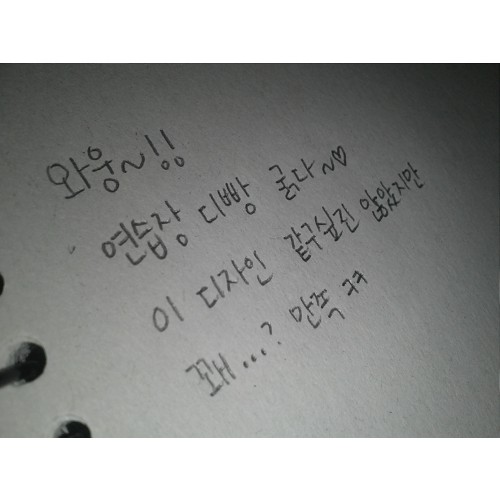 와웅~!!
연습장 디빵 굵다~♡
이 디자인 갖구싶긴 않았지만
꽤...? 만족 ㅋㅋ